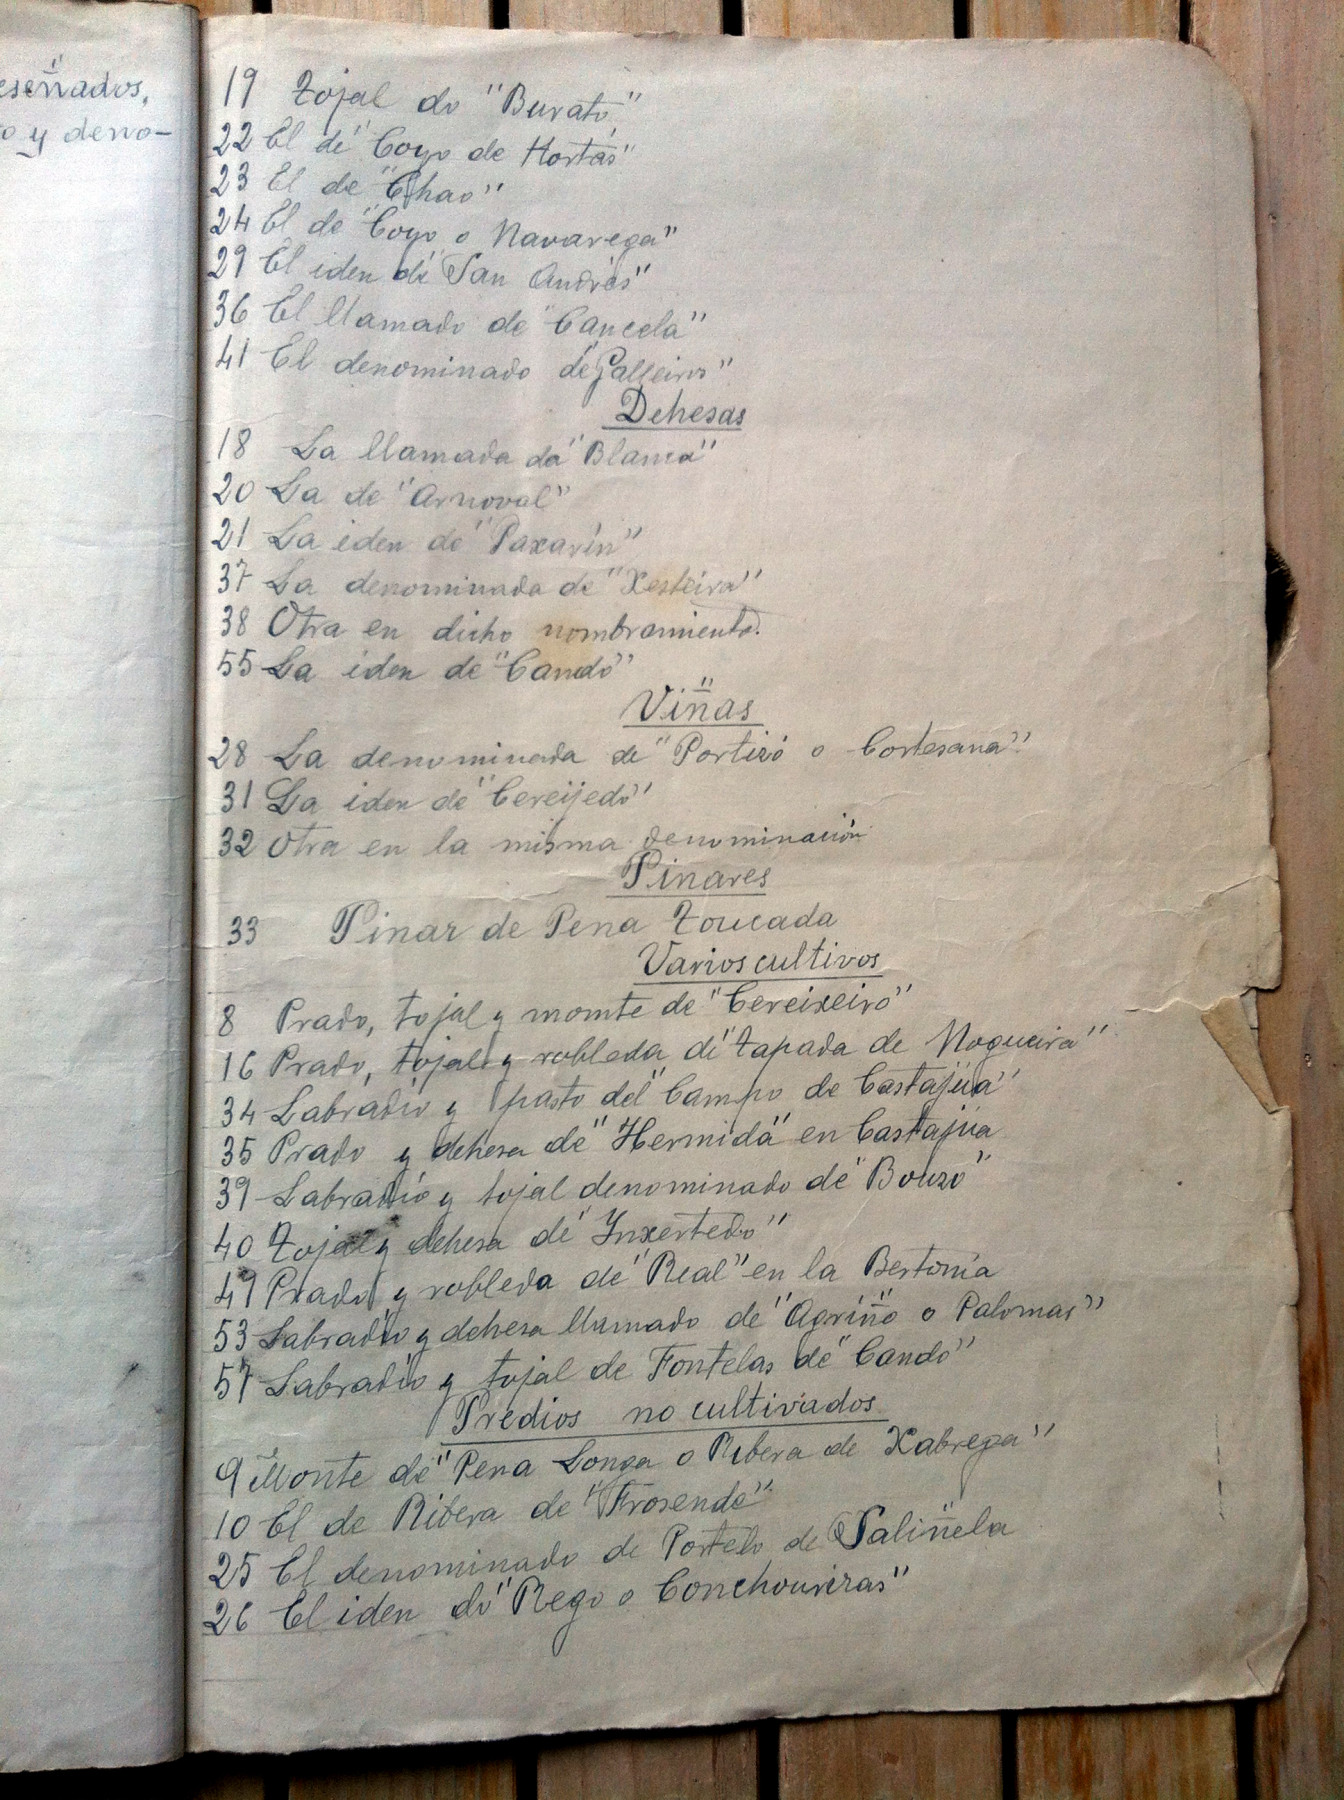 eseñados,
o y deno-
19 Tojal do "Burato"
22 El de "Coyo de Hortas"
23 El de "Chao"
24 El de "Coyo o Navarega"
29 El iden de "San Andrés"
36 El llamado de "Cancela"
41 El denominado de "Galleiros"
Dehesas
18 La llamada da "Blanca"
20 La de "Arnoval"
21 La iden de "Paxarín"
37 La denominada de "Xesteira"
38 Otra en dicho nombramiento.
55 La iden de "Candó"
Viñas
28 La denominada de "Portizó o Cortesana"
31 La iden de "Cereijedo"
32 Otra en la misma denominación
Pinares
33 Pinar de Pena Toucada
Varios cultivos
8 Prado, tojal y momte de "Cereixeiro"
16 Prado, tojal y robleda de "Tapada de Nogueira"
34 Labradío y pasto del "Campo de Castajúa"
35 Prado y dehesa de "Hermida" en Castajúa
39 Labradío y tojal denominado de "Bouzo"
40 Tojal y dehesa de "Ynxertedo"
49 Prado y robleda de "Real" en la Bertonia
53 Labradío y dehesa llamado de "Agriño o Palomas"
57 Labradío y tojal de Fontelas de "Candó"
Predios no cultivados
9 Monte de "Pena Longa o Ribera de Xabrega"
10 El de Ribera de "Frosende"
25 El denominado de Portelo de Saliñela
26 El iden do "Rego o Conchourizas"